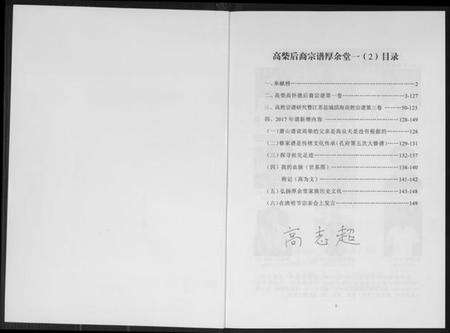 高柴后裔宗谱厚余堂一（2）目录
一、奉献榜 2
二、高柴高怀德后裔宗谱第一卷 3-127
三、高姓宗谱研究暨江苏盐城滨海高姓宗谱第三卷 50-125
四、2017年谱新增内容 128-149
（一）萧山谱说高瑜的父亲是高袋夫是没有根据的 128
（二）修家谱是传播文化传承（孔府第五次大修谱） 129-131
（三）探寻祖先足迹 132-137
（四）我的血脉（世系图） 138-140
附记（高为文） 141-142
（五）弘扬厚余堂家族历史文化 143-148
（六）在清明节宗亲会上发言 149
高志超